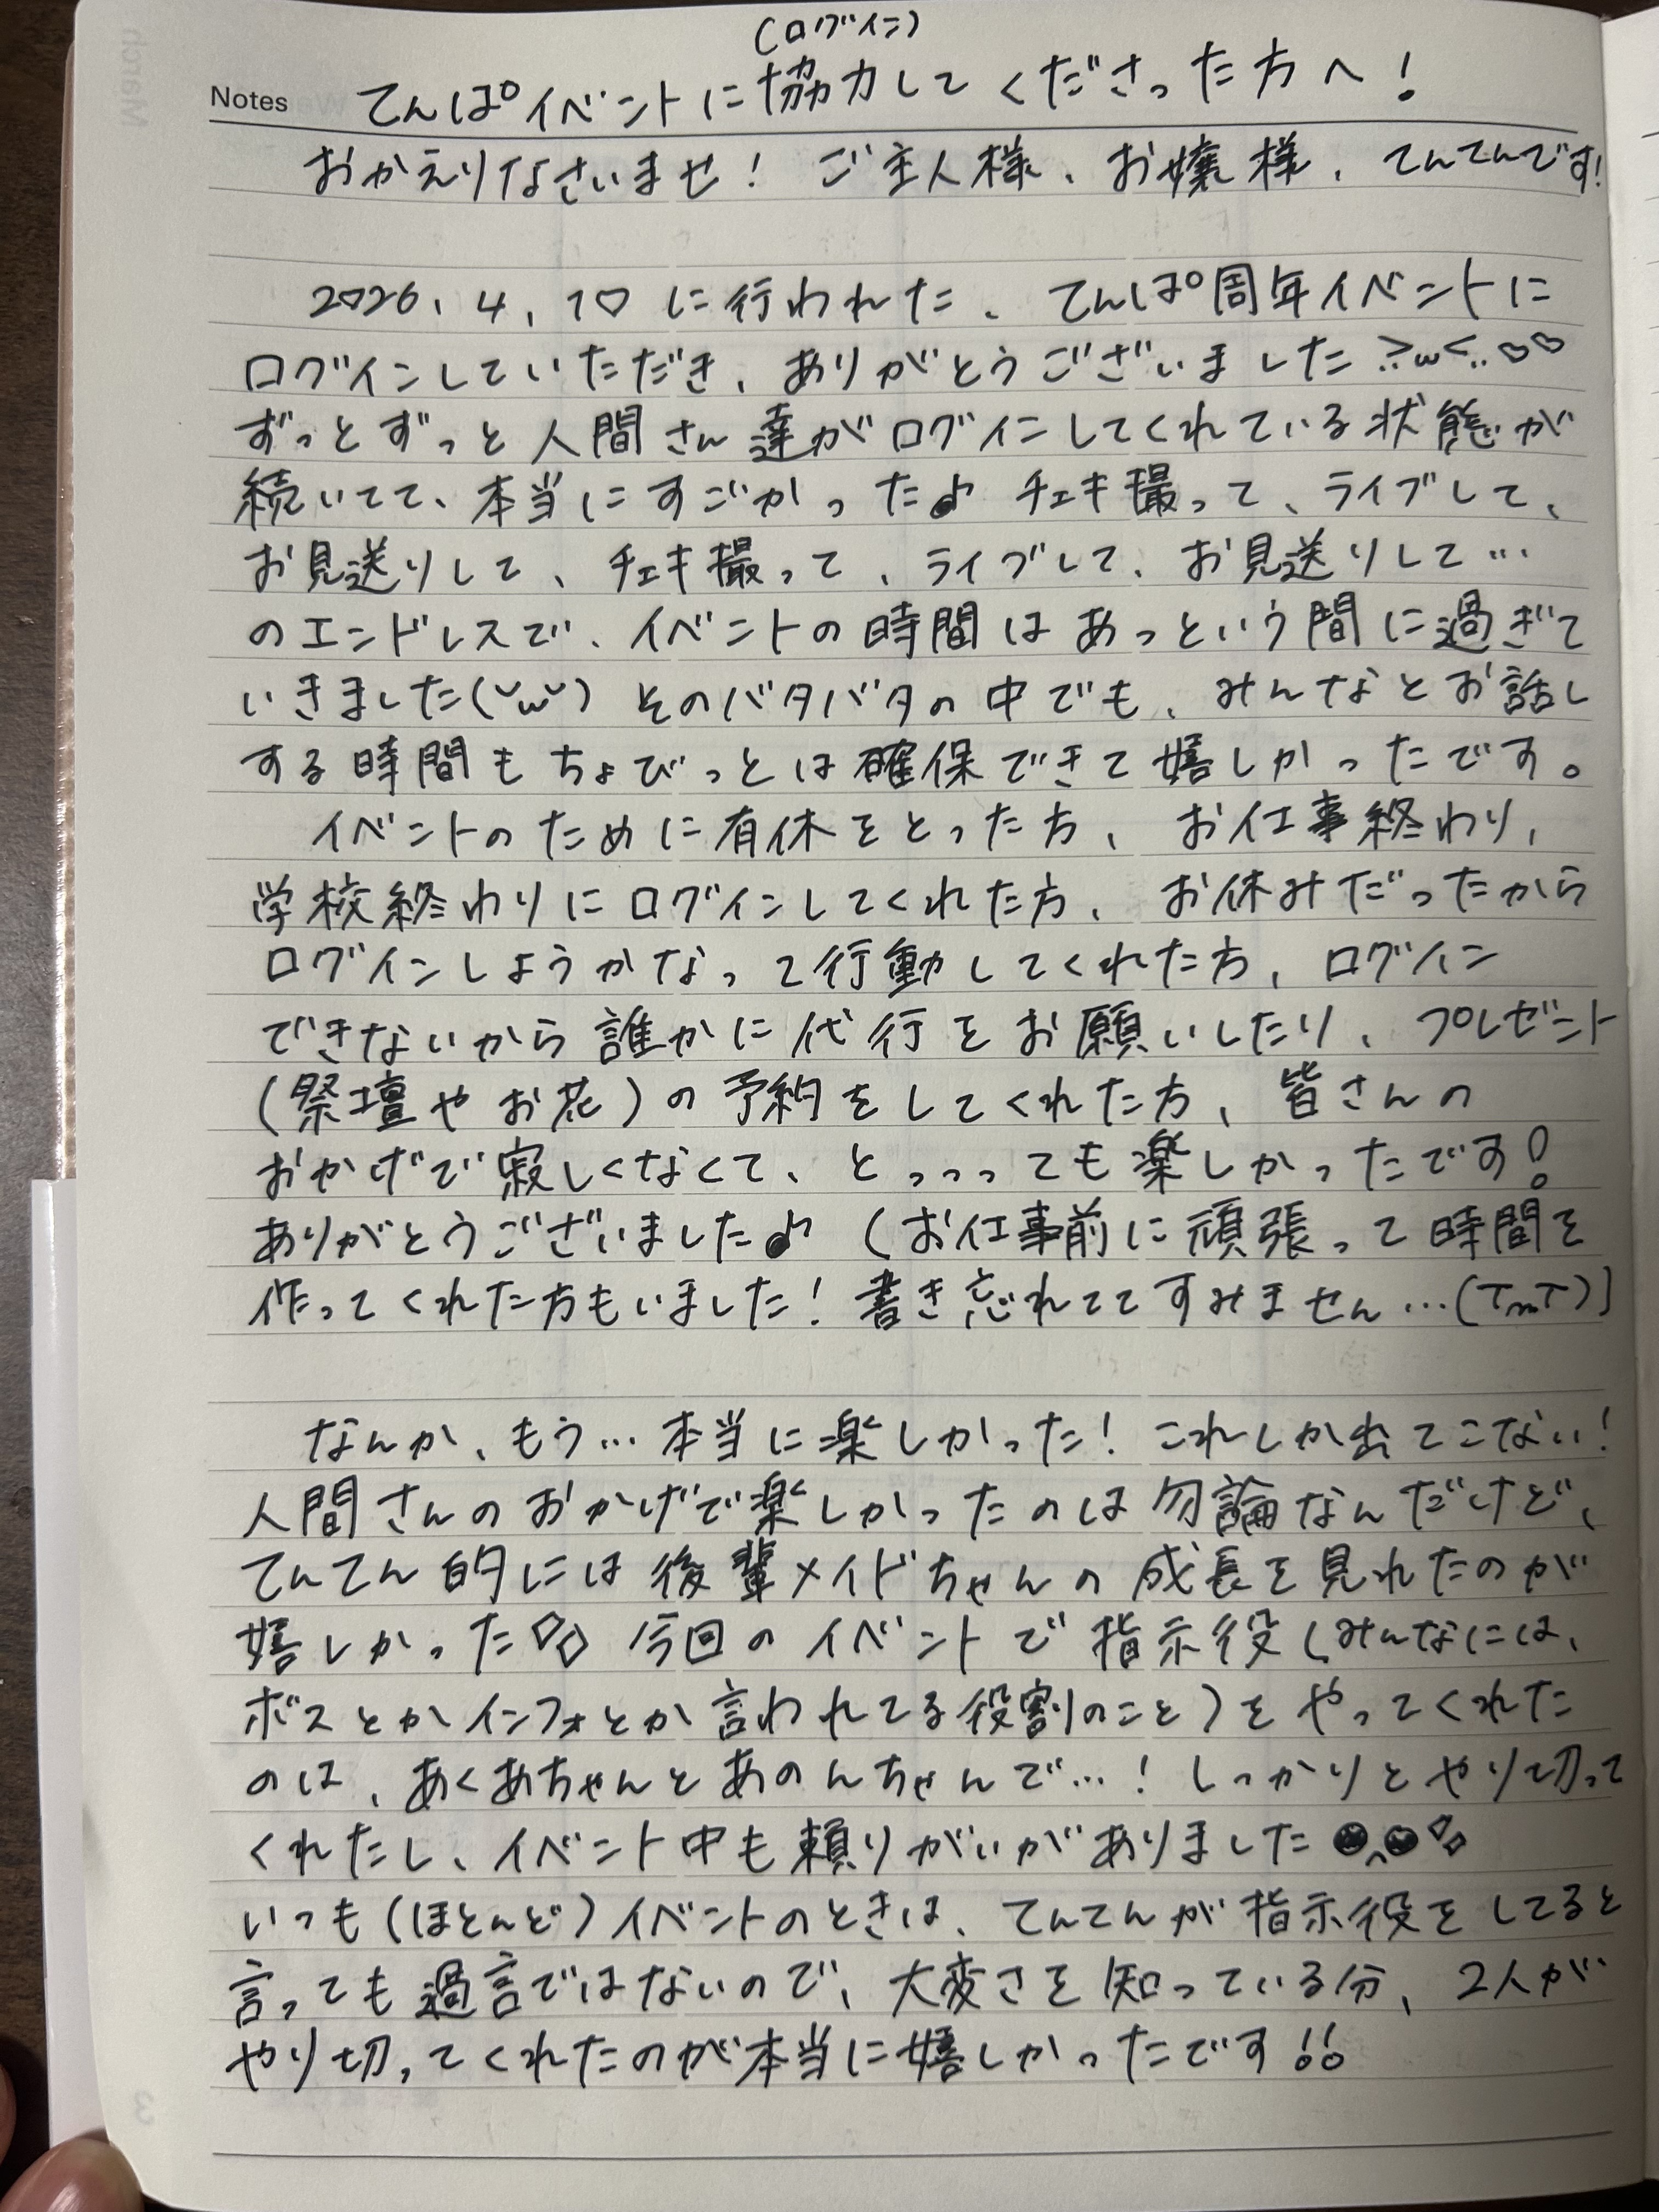 (ログイン)
Notes てんぱ°イベントに協力してくださった方へ!
おかえりなさいませ! ご主人様、お嬢様、てんてんです!
2026. 4. 10 に行われた、てんぱ周年イベントに
ログインしていただき、ありがとうございました >ω< ♡♡
ずっとずっと人間さん達がログインしてくれている状態が
続いてて、本当にすごかった♪ チェキ撮って、ライブして、
お見送りして、チェキ撮って、ライブして、お見送りして…
のエンドレスで、イベントの時間はあっという間に過ぎて
いきました(˘ω˘) そのバタバタの中でも、みんなとお話し
する時間もちょびっとは確保できて嬉しかったです。
イベントのために有休をとった方、お仕事終わり、
学校終わりにログインしてくれた方、お休みだったから
ログインしようかなって行動してくれた方、ログイン
できないから誰かに代行をお願いしたり、プレゼント
(祭壇やお花)の予約をしてくれた方、皆さんの
おかげで寂しくなくて、とっっっても楽しかったです!
ありがとうございました♪ (お仕事前に頑張って時間を
作ってくれた方もいました! 書き忘れててすみません…(TmT))
なんか、もう…本当に楽しかった! これしか出てこない!
人間さんのおかげで楽しかったのは勿論なんだけど、
てんてん的には後輩メイドちゃんの成長を見れたのが
嬉しかった◇◇ 今回のイベントで指示役(みんなには、
ボスとかインフォとか言われてる役割のこと)をやってくれた
のは、あくあちゃんとあのんちゃんで…! しっかりとやり切って
くれたし、イベント中も頼りがいがありました
いつも(ほとんど)イベントのときは、てんてんが指示役をしてると
言っても過言ではないので、大変さを知っている分、2人が
やり切ってくれたのが本当に嬉しかったです!!
3